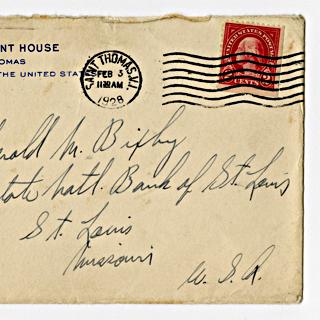 NT HOUSE
OMAS
THE UNITED STAT
SAINT THOMAS, V.I.
FEB 3
11 AM
1928
UNITED STATES POSTAGE
2 CENTS 2
nold M. Bixby
tate Natl. Bank of St. Louis
St. Louis
Missouri
U. S. A.